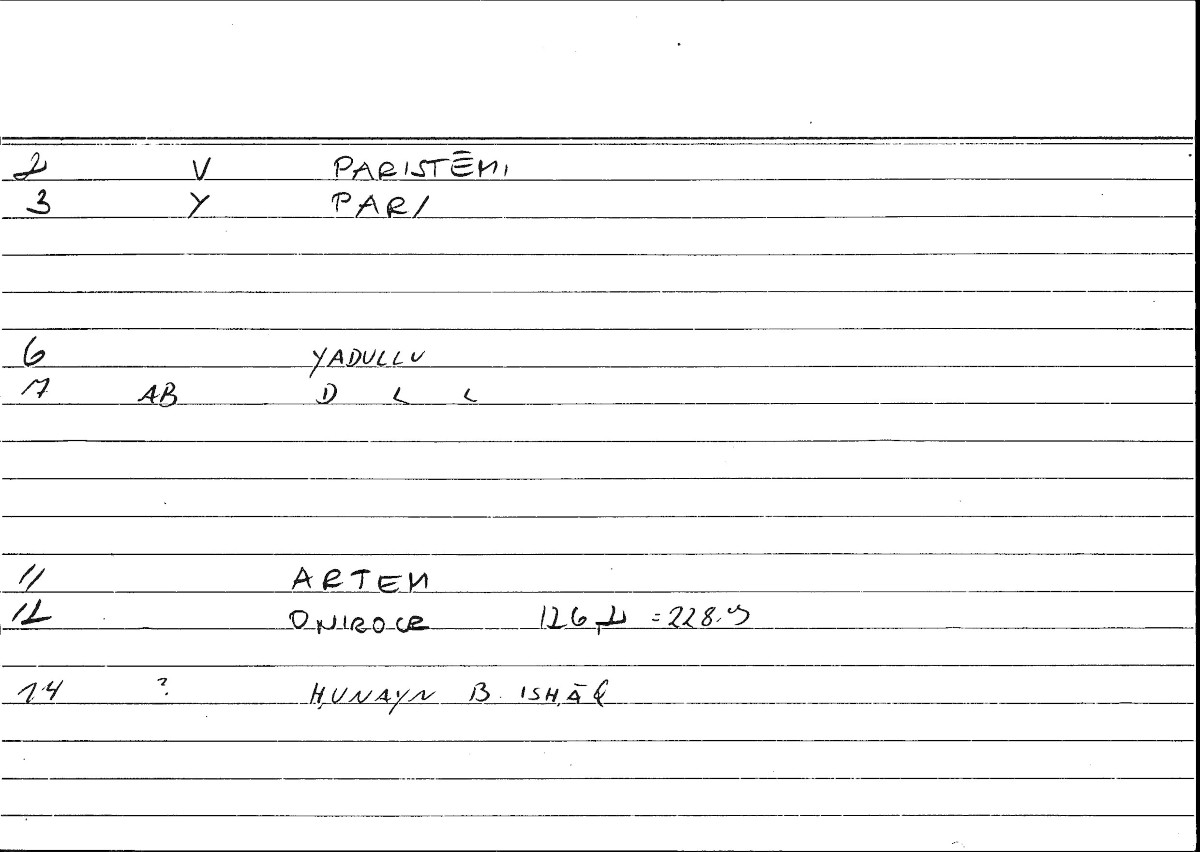 2 V PARISTĒMI
3 Y PARI
6 YADULLU
7 AB D L L
11 ARTEM
12 ONIROCR 126,2 = 228.9
14 ? ḤUNAYN B. ISḤĀQ